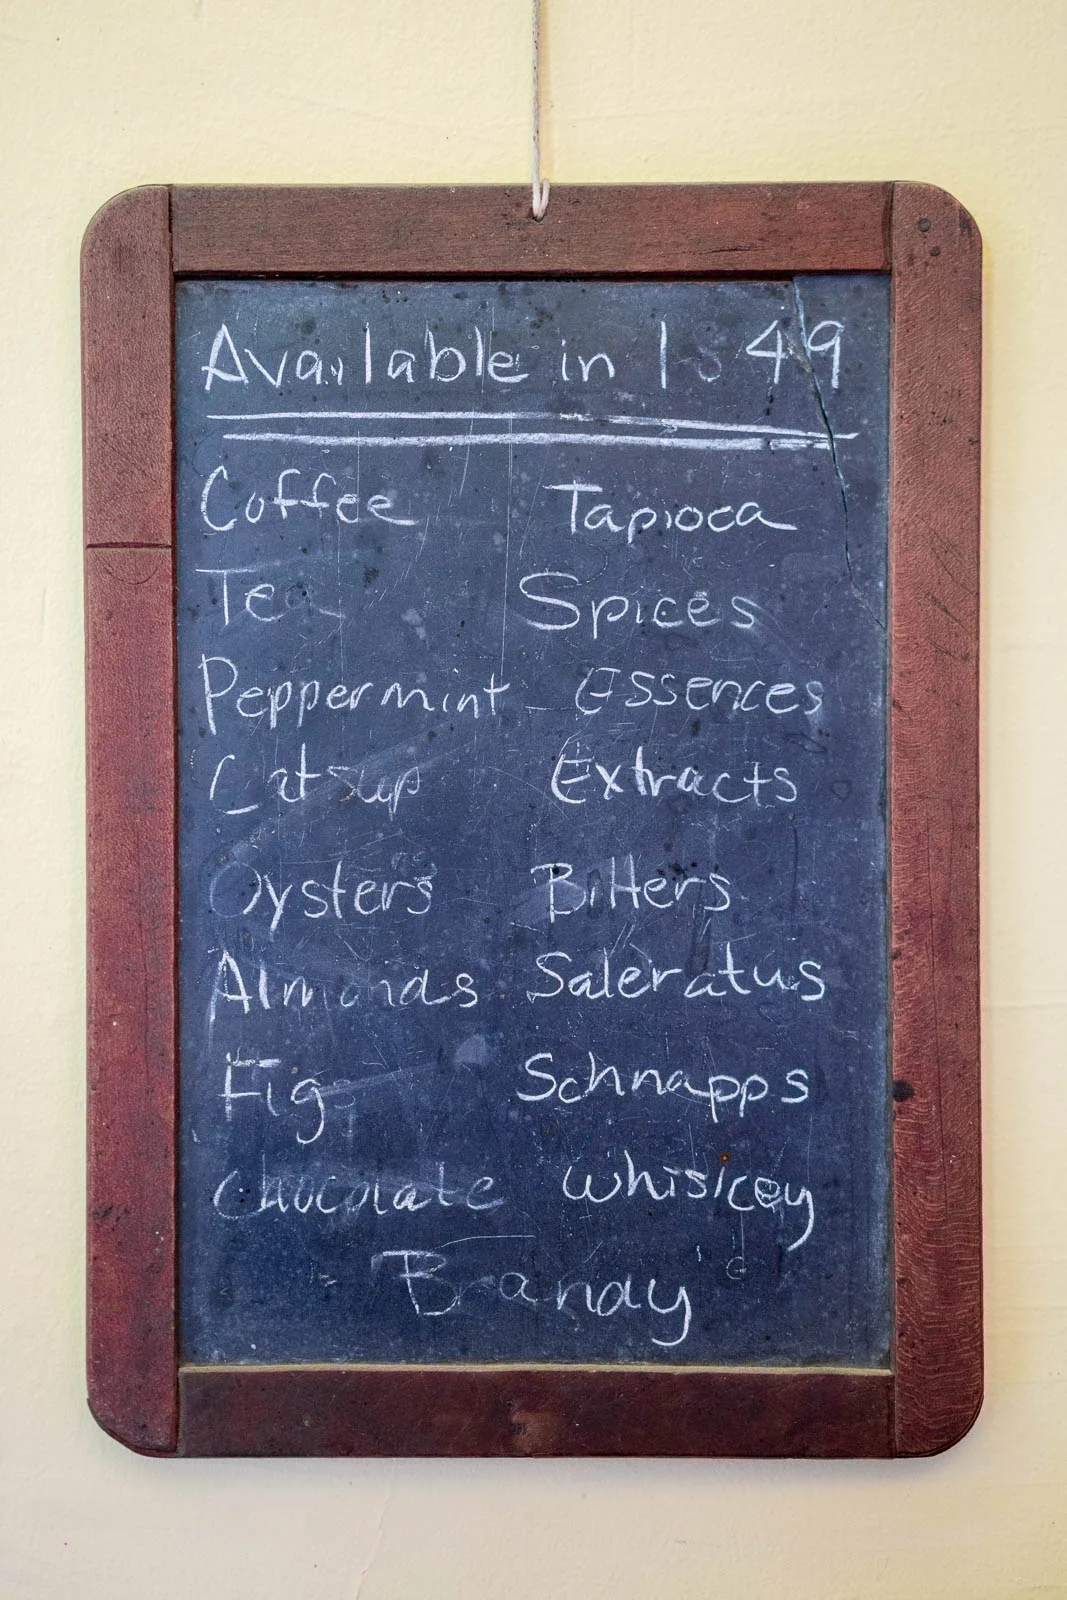 Available in 1849
Coffee Tapioca
Tea Spices
Peppermint Essences
Catsup Extracts
Oysters Bitters
Almonds Saleratus
Figs Schnapps
Chocolate Whiskey
Brandy